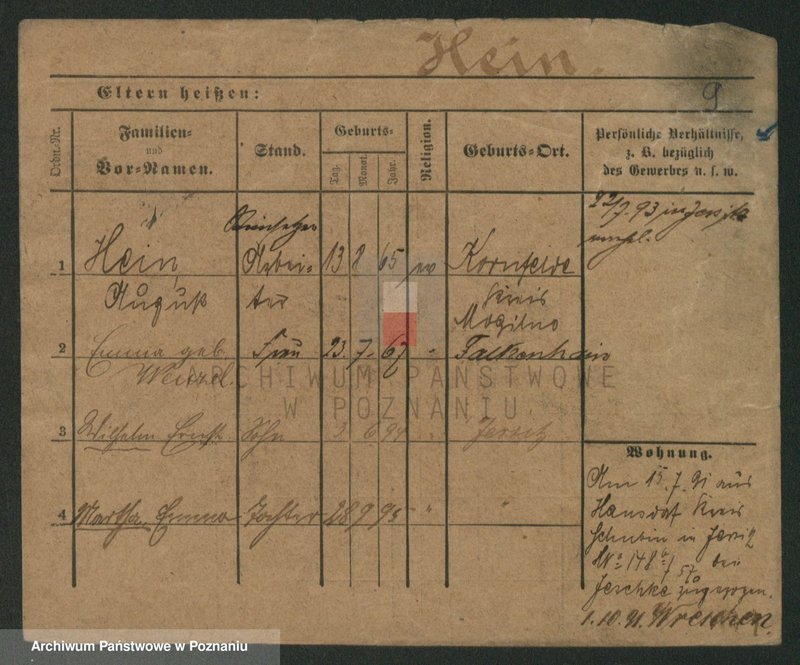 Hein
9
Eltern heißen:
Ordn.-Nr.
Familien-
und
Vor-Namen.
Stand.
Geburts-
Tag.
Monat.
Jahr.
Religion.
Geburts-Ort.
Persönliche Verhältnisse,
z. B. bezüglich
des Gewerbes u. s. w.
1 Hein, Arbei- 13 8 65 ev Kornfelde
August ter Kreis
Mogilno
2 Emma geb. Frau 23. 7. 67 " Falkenhain
Wenzel
3 Wilhelm Ernst Sohn 3 6 94 Jersitz
4 Martha Emma Tochter 28 9 95 " "
22/7. 93 in Jersitz
Wohnung.
Am 15. 7. 91 aus
Hansdorf Kreis
Schubin in Jersitz
No 148 bei
Jeschke zugezogen.
1. 10. 91. Wreschen
ARCHIWUM PAŃSTWOWE
W POZNANIU
Archiwum Państwowe w Poznaniu